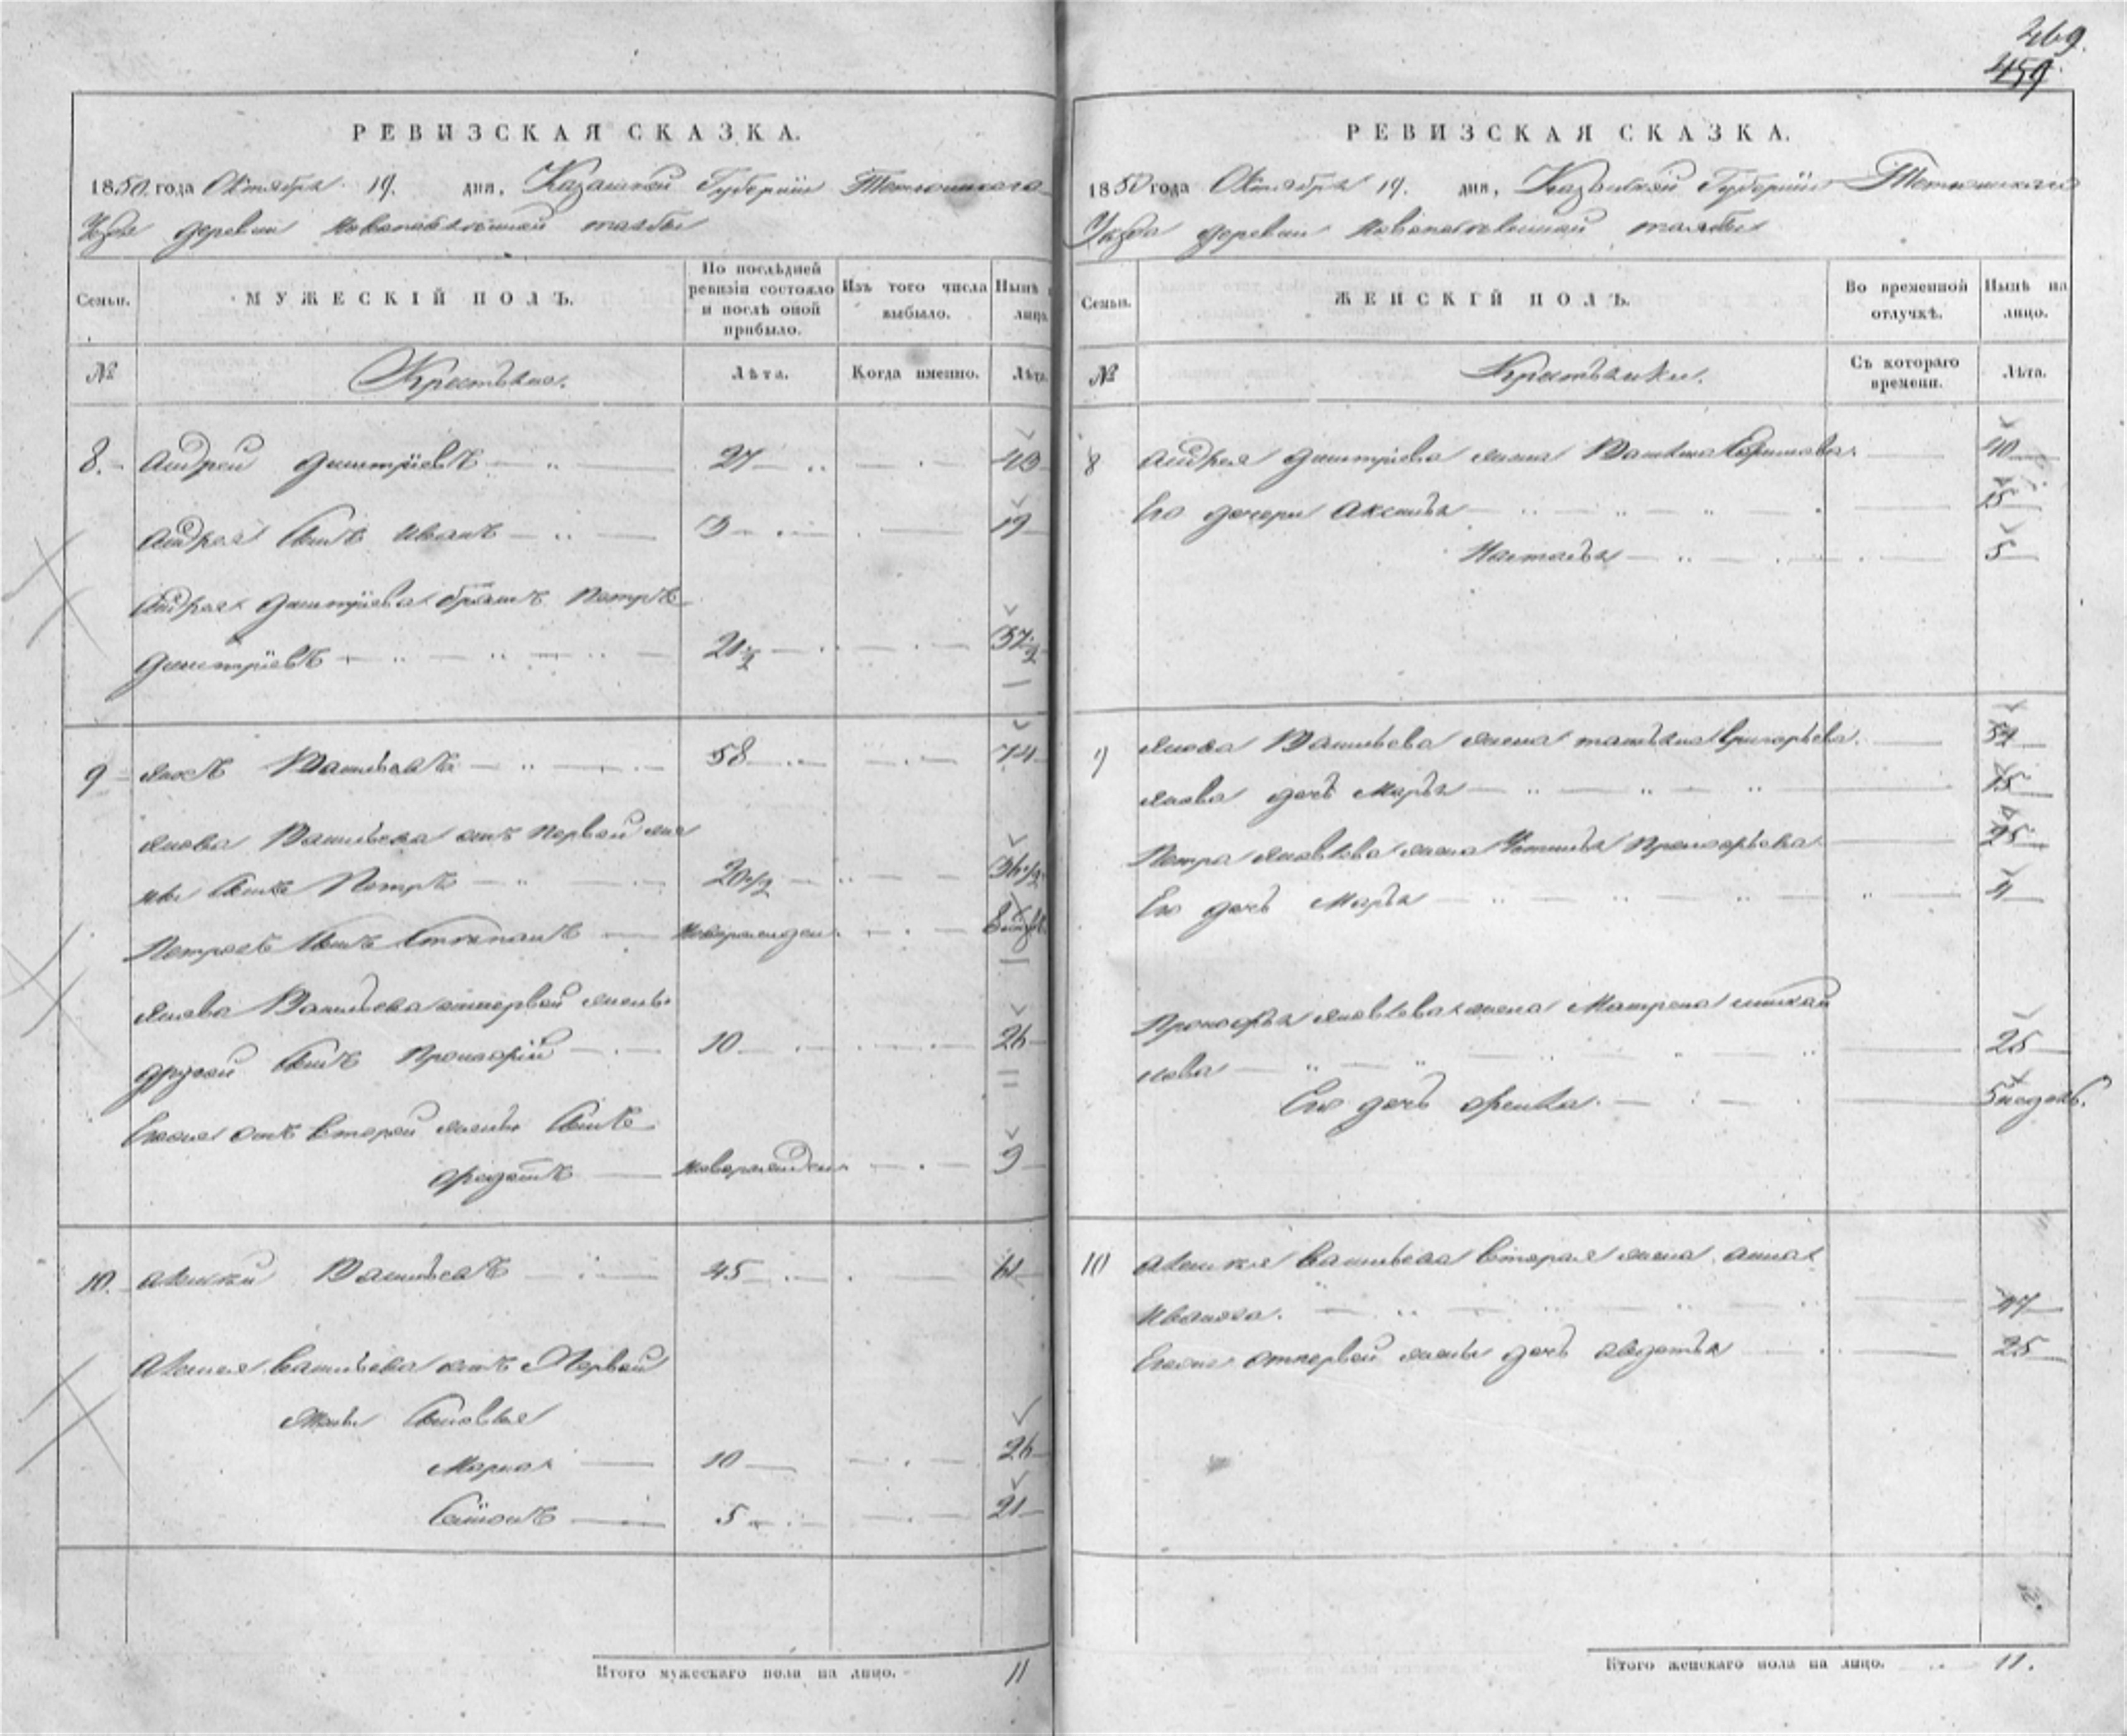 269.
459
РЕВИЗСКАЯ СКАЗКА.
1850 года Октября 19. дня, Казанской Губернiи Тетюшскаго
Уѣзда деревни
Семьи.
МУЖЕСКIЙ ПОЛЪ.
По послѣдней ревизiи состояло и послѣ оной прибыло.
Изъ того числа выбыло.
Нынѣ лицо.
№
Крестьяне.
Лѣта.
Когда именно.
Лѣта.
8. Андрей Дмитрiевъ 27 43
Андрея сынъ Иванъ 3 19
Андрея Дмитрiева братъ Петръ
Дмитрiевъ 21½ 37½
9 Яковъ Васильевъ 58 74
Якова Васильева отъ первой же
ны сынъ Петръ 20½ 36½
Петровъ сынъ Степанъ новорожден. 8
Якова Васильева отпервой жены
другой сынъ Прокофiй 10 26
Егоже отъ второй жены сынъ
Федотъ новорожден 9
10. Алексей Васильевъ 45 61
Алексея Васильева отъ Первой
Жены Сыновья
Марка 10 26
Семонъ 5 21
Итого мужескаго пола на лицо. 11
РЕВИЗСКАЯ СКАЗКА.
1850 года Октября 19. дня, Казанской Губернiи Тетюшскаго
Уѣзда деревни
Семьи.
ЖЕНСКIЙ ПОЛЪ.
Во временной отлучкѣ.
Нынѣ на лицо.
№
Крестьянки.
Съ котораго времени.
Лѣта.
8 Андрея Дмитрiева жена 40
Его дочери Аксинья 15
Настасья 5
9 Якова Васильева жена Татьяна Григорьева. 52
Якова дочь Марья 15
Петра Яковлева жена Устинья Прокофьева 25
Его дочь Марья 4
Прокофья Яковлева жена Матрена Михай
лова 25
Его дочь Фекла. 5 недель.
10 Алексея Васильева вторая жена Анна
Иванова. 47
Егоже отпервой жены дочь Авдотья 25
Итого женскаго пола на лицо. 11.